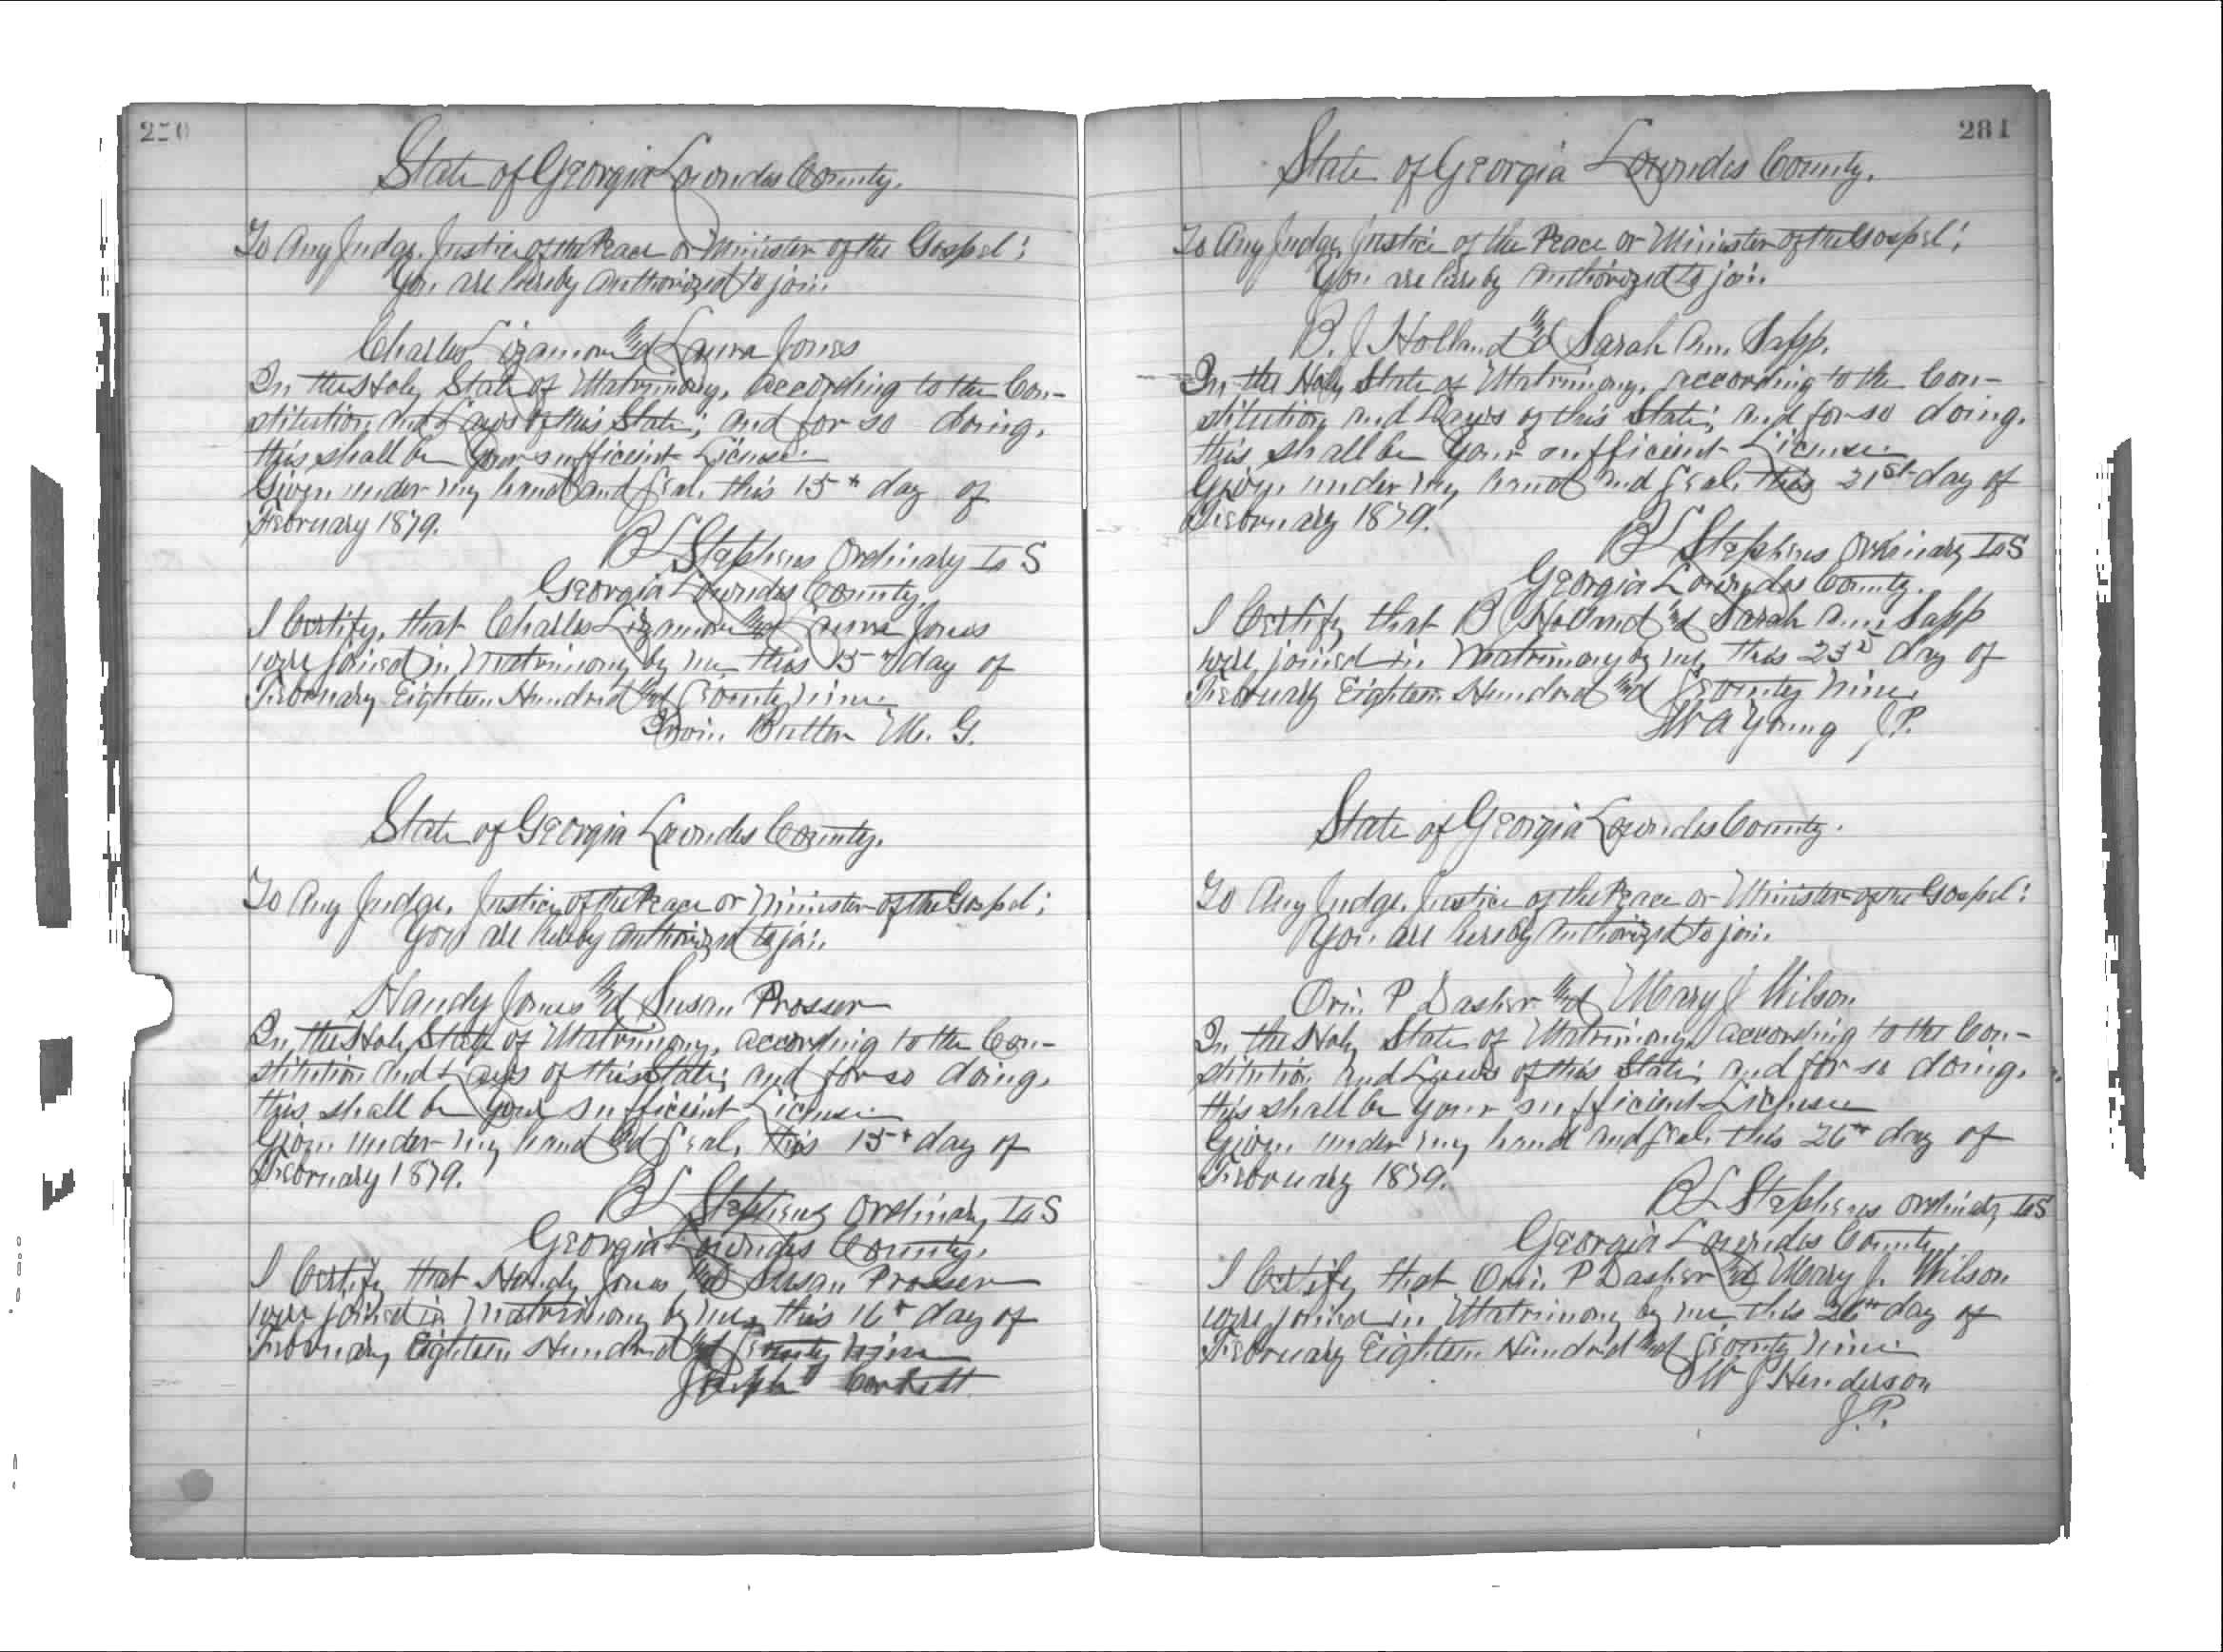 State of Georgia Lowndes County.
To Any Judge, Justice of the Peace or Minister of the Gospel;
You are hereby Authorized to join
Charles and Laura Jones
In the Holy State of Matrimony, according to the Con-
stitution and Laws of this State; and for so doing,
this shall be Your sufficient License
Given under my hand and Seal, this 15th day of
February 1879.
Stephens Ordinary L S
Georgia Lowndes County.
I Certify, that Charles and Laura Jones
were joined in Matrimony by me this 15th day of
February Eighteen Hundred and Seventy Nine
Butler M. G.
State of Georgia Lowndes County.
To Any Judge, Justice of the Peace or Minister of the Gospel;
You are hereby Authorized to join
Handy Jones and Susan Prosser
In the Holy State of Matrimony, according to the Con-
stitution and Laws of this State; and for so doing,
this shall be Your sufficient License
Given under my hand and Seal, this 15th day of
February 1879.
Stephens Ordinary L S
Georgia Lowndes County.
I Certify that Handy Jones and Susan Prosser
were joined in Matrimony by me, this 16th day of
February Eighteen Hundred and Seventy Nine
Joseph Corbett
281
State of Georgia Lowndes County.
To Any Judge, Justice of the Peace or Minister of the Gospel;
You are hereby Authorized to join
B. J Holland and Sarah Ann Sapp.
In the Holy State of Matrimony, according to the Con-
stitution and Laws of this State; and for so doing,
this shall be Your sufficient License
Given under my hand and Seal, this 21st day of
February 1879.
Stephens Ordinary L S
Georgia Lowndes County.
I Certify that B J Holland and Sarah Ann Sapp
were joined in Matrimony by me, this 23d day of
February Eighteen Hundred and Seventy Nine
W A Young J.P.
State of Georgia Lowndes County.
To Any Judge, Justice of the Peace or Minister of the Gospel;
You are hereby Authorized to join
Orin P Dasher and Mary J Wilson
In the Holy State of Matrimony, according to the Con-
stitution and Laws of this State; and for so doing,
this shall be Your sufficient License
Given under my hand and Seal, this 26th day of
February 1879.
Stephens Ordinary L S
Georgia Lowndes County
I Certify that Orin P Dasher and Mary J. Wilson
were joined in Matrimony by me this 26th day of
February Eighteen Hundred and Seventy Nine
W J Henderson
J.P.